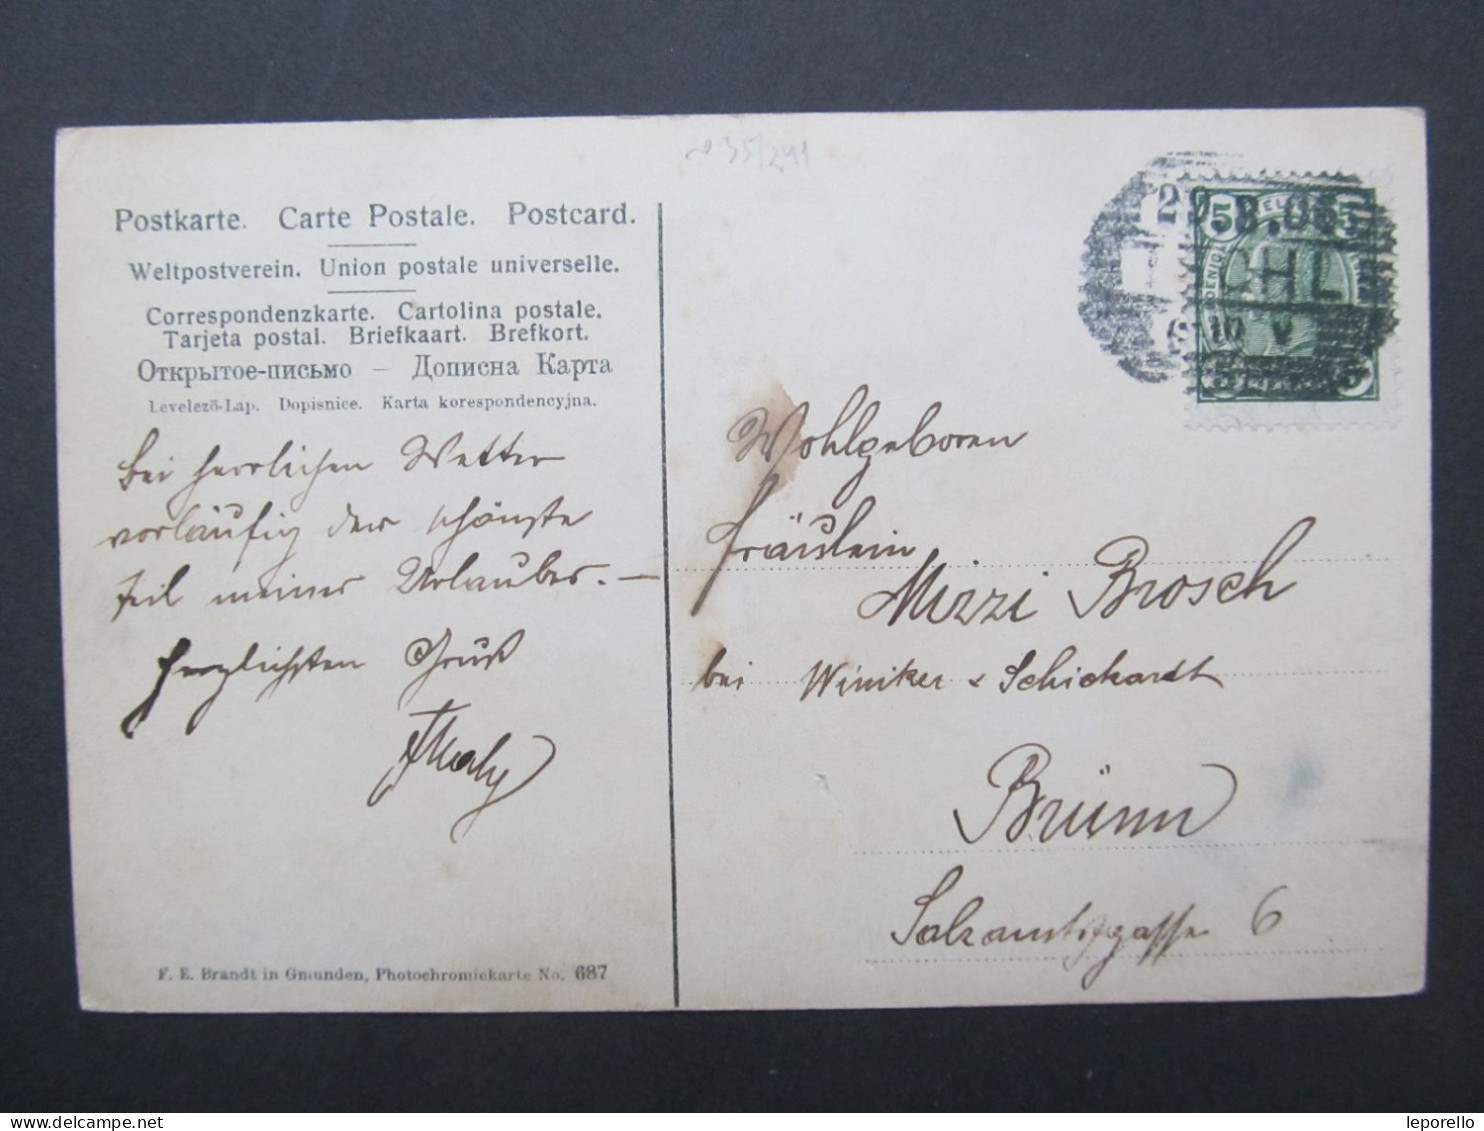 35/241
Postkarte. Carte Postale. Postcard.
Weltpostverein. Union postale universelle.
Correspondenzkarte. Cartolina postale.
Tarjeta postal. Briefkaart. Brefkort.
Открытое-письмо — Дописна Карта
Levelező-Lap. Dopisnice. Karta korespondencyjna.
bei herrlichen Wetter
vorläufig der schönste
Teil meines Urlaubes. —
Herzlichsten Gruß
F. E. Brandt in Gmunden, Photochromiekarte No. 687
5 5
5 5
Wohlgeboren
Fräulein
Mizzi Brosch
bei Winiker & Schickardt
Brünn
Salzamtsgasse 6
www.delcampe.net
leporello